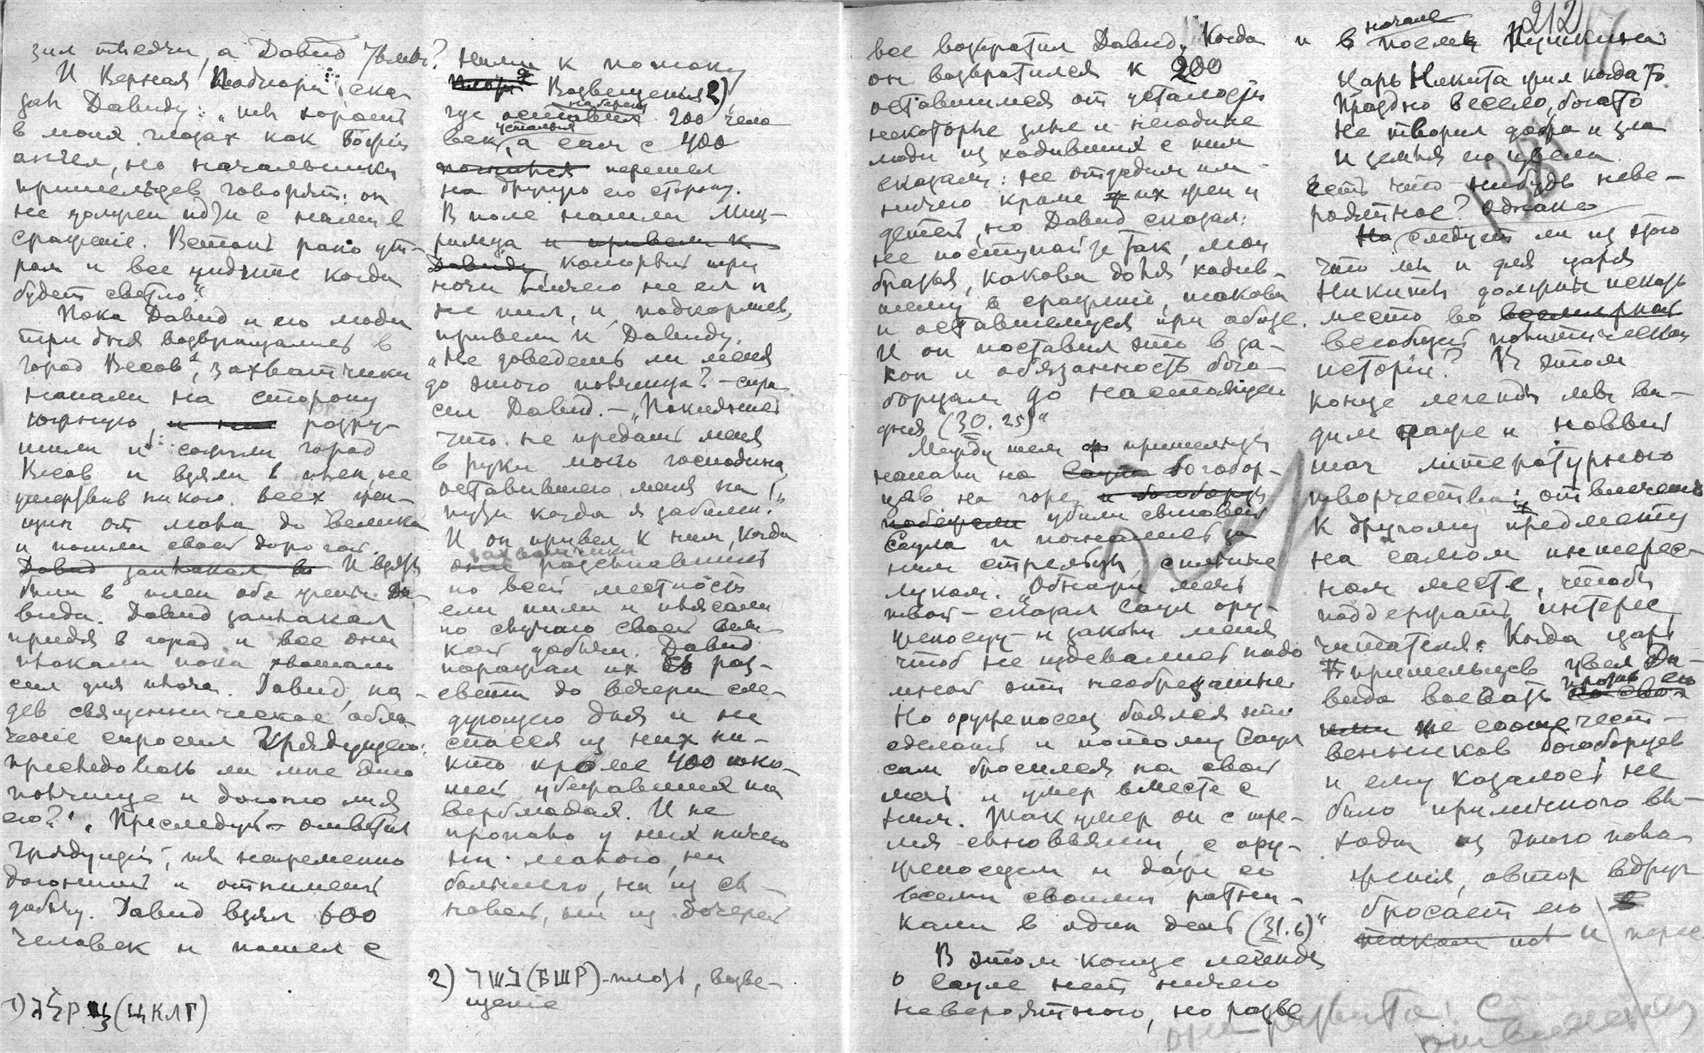 зил тысячи, а Давид тьмы?
И Верная Победа сказал
Давиду: „ты хорош
в моих глазах как Божий
ангел, но начальники
пришельцев говорят: он
не должен идти с нами в
сражение. Встань рано ут-
ром и все уйдите когда
будет светло.“
Пока Давид и его люди
три дня возвращались в
город Весов¹, захватчики
напали на сторону
южную, разру-
шили и сожгли город
Весов и взяли в плен, не
умертвив никого, всех жен-
щин от мала до велика
и пошли своей дорогой.
Давид заплакал И взяты
были в плен обе жены Да-
вида. Давид заплакал
придя в город и все они
плакали пока хватало
сил для плача. Давид, на-
дев священническое обла-
чение спросил Грядущего:
преследовать ли мне это
полчище и догоню ли я
его?“. Преследуй — ответил
Грядущий, ты непременно
догонишь и отнимешь
добычу. Давид взял 600
человек и пошел с
1) גלקצ (ЦКЛГ)
ними к потоку
Возвещения 2),
где оставил на берегу 200 чело
век усталых, а сам с 400
перешел
на другую его сторону.
В поле нашли Миц-
римца и привели к
Давиду, который три
ночи ничего не ел и
не пил, и, подкормив,
привели к Давиду.
„Не доведешь ли меня
до этого полчища? — спро-
сил Давид. — „Поклянись
что не предашь меня
в руки моего господина
оставившего меня на
пути когда я заболел!“
И он привел к ним, когда
захватчики
они рассыпавшись
по всей местности
ели пили и плясали
по случаю своей вели-
кой добычи. Давид
поражал их с раз-
света до вечера сле-
дующего дня и не
спасся из них ни-
кто кроме 400 юно-
шей, убежавших на
верблюдах. И не
пропало у них ничего
ни малого, ни
большого, ни из сы-
новей, ни из дочерей
2) בשר (БШР) - плоть, возве-
щение
все возвратил Давид. Когда
он возвратился к 200
оставшимся от усталости
некоторые злые и негодные
люди из ходивших с ним
сказали: не отдадим им
ничего кроме их жен и
детей, но Давид сказал:
не поступайте так, мои
братья, какова доля ходив-
шему в сражение, такова
и оставшемуся при обозе.
И он поставил это в за-
кон и обязанность бого-
борцам до настоящего
дня (30. 25)“
Между тем пришельцы
напали на Саула богобор-
цев на горе и богоборцы
победили убили сыновей
Саула и погнались за
ним стрельцы с
луком. „Обнажи меч
твой — сказал Саул ору-
женосцу — и заколи меня
чтоб не издевались надо
мной эти необрезанные
Но оруженосец боялся это
сделать и потому Саул
сам бросился на свой
меч и умер вместе с
ним. Так умер он с тре-
мя сыновьями, с ору-
женосцем и даже со
всеми своими ратни-
ками в один день (31. 6)“
В этом конце легенды
о Сауле нет ничего
невероятного, но разве
212
и в начале поемы Пушкина
Царь Никита жил когда то
Праздно весело, богато
Не творил добра и зла
И земля его цвела.
Есть что-нибудь неве-
роятное? Однако
Но следует ли из этого
что мы и для царя
Никиты должны искать
место во всемирной
всеобщей политической
истории? В этом
конце легенды мы ви-
дим даже и новый
шаг литературного
творчества: отвлечение
к другому предмету
на самом интерес-
ном месте, чтобы
поддержать интерес
читателя. Когда царь
пришельцев увел Да-
вида воевать против его
же соотечест-
венников богоборцев
и ему казалось не
было приличного вы-
хода из этого поло
жения, автор вдруг
бросает его
и пере